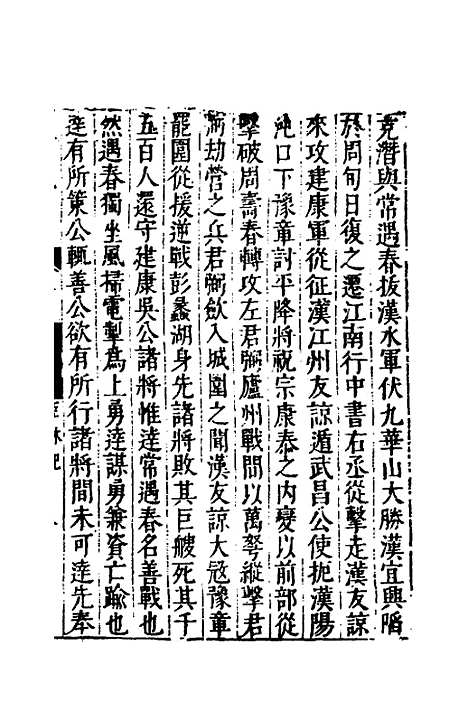 克潛與常遇春拔漢水軍伏九華山大勝漢宜興陷
於周旬日復之遷江南行中書右丞從擊走漢友諒
來攻建康軍從征漢江州友諒遁武昌公使扼漢陽
沌口下豫章討平降將祝宗康泰之內變以前部從
擊破周壽春轉攻左君弼廬州戰間以萬弩縱擊君
弼劫營之兵君弼斂入城圍之聞漢友諒大寇豫章
罷圍從援逆戰彭蠡湖身先諸將敗其巨艘死其千
五百人還守建康吳公諸將惟達常遇春名善戰也
然遇春獨坐風掃電掣為上勇達謀勇兼資亡踰也
達有所策公輒善公欲有所行諸將間未可達先奉